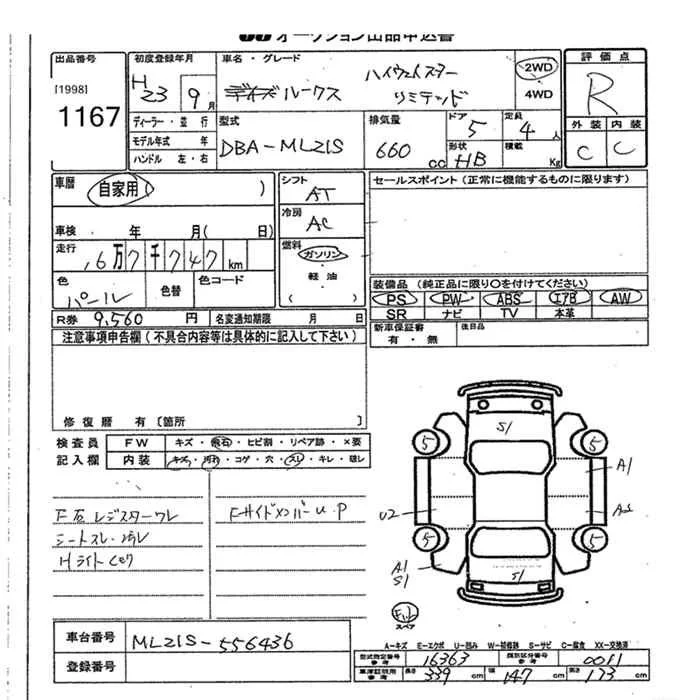 オークション出品申込書
出品番号
[1998]
1167
初度登録年月
H23 9月
車名・グレード
デイズルークス ハイウェイスター
リミテッド
2WD
4WD
評価点
R
外装 内装
C C
ディーラー・並行
モデル年式 年
ハンドル 左・右
型式
DBA-ML21S
排気量
660 cc
ドア 5
定員 4人
形状 HB
積載 Kg
車歴
自家用( )
シフト
AT
セールスポイント(正常に機能するものに限ります)
車検 年 月( 日)
冷房
AC
走行
6万7千747km
燃料
ガソリン
軽油
( )
色
パール
色替
色コード
装備品(純正品に限り○を付けてください)
PS PW ABS エアB AW
SR ナビ TV 本革
R券 9,560 円
名変通知期限 月 日
新車保証書
有・無
後日品
注意事項申告欄(不具合内容等は具体的に記入して下さい)
修復歴 有〔箇所 〕
検査員
記入欄
FW キズ・飛石・ヒビ割・リペア跡・×要
内装 キズ・汚れ・コゲ・穴・スレ・キレ・破レ
F右レジスターワレ
シートスレ・汚レ
Hライト
FサイドメンバーU.P
S1
5
5
A1
U2
5
5
A1
S1
S1
スペア
車台番号
ML21S-556436
登録番号
A-キズ E-エクボ U-凹み W-補修跡 S-サビ C-腐食 XX-交換済
型式指定番号
参考
16363
類別区分番号
参考
0011
車庫証明用
参考
長さ 339 cm
幅 147 cm
高さ 173 cm